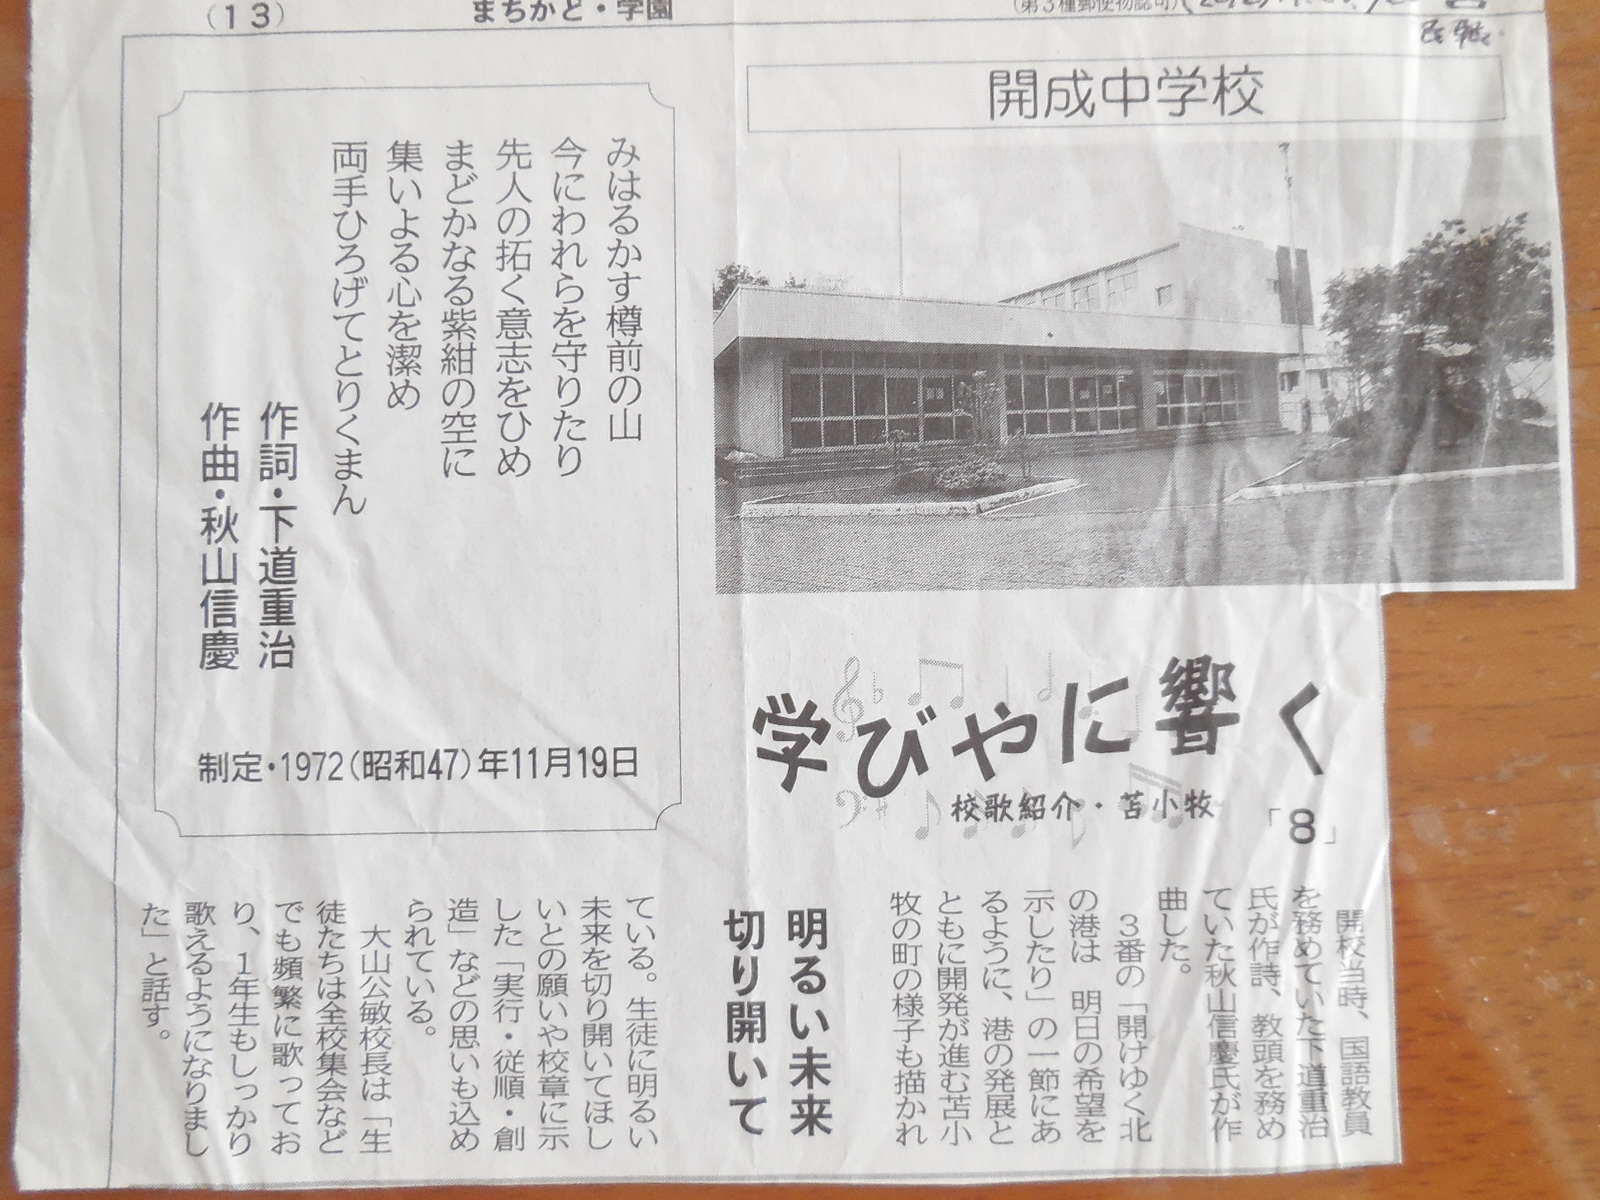 (13)
まちかど・学園
(第3種郵便物認可)
開成中学校
みはるかす樽前の山
今にわれらを守りたり
先人の拓く意志をひめ
まどかなる紫紺の空に
集いよる心を潔め
両手ひろげてとりくまん
作詞・下道重治
作曲・秋山信慶
制定・1972(昭和47)年11月19日
学びやに響く
校歌紹介・苫小牧
「8」
開校当時、国語教員
を務めていた下道重治
氏が作詩、教頭を務め
ていた秋山信慶氏が作
曲した。
3番の「開けゆく北
の港は 明日の希望を
示したり」の一節にあ
るように、港の発展と
ともに開発が進む苫小
牧の町の様子も描かれ
明るい未来
切り開いて
ている。生徒に明るい
未来を切り開いてほし
いとの願いや校章に示
した「実行・従順・創
造」などの思いも込め
られている。
大山公敏校長は「生
徒たちは全校集会など
でも頻繁に歌ってお
り、1年生もしっかり
歌えるようになりまし
た」と話す。